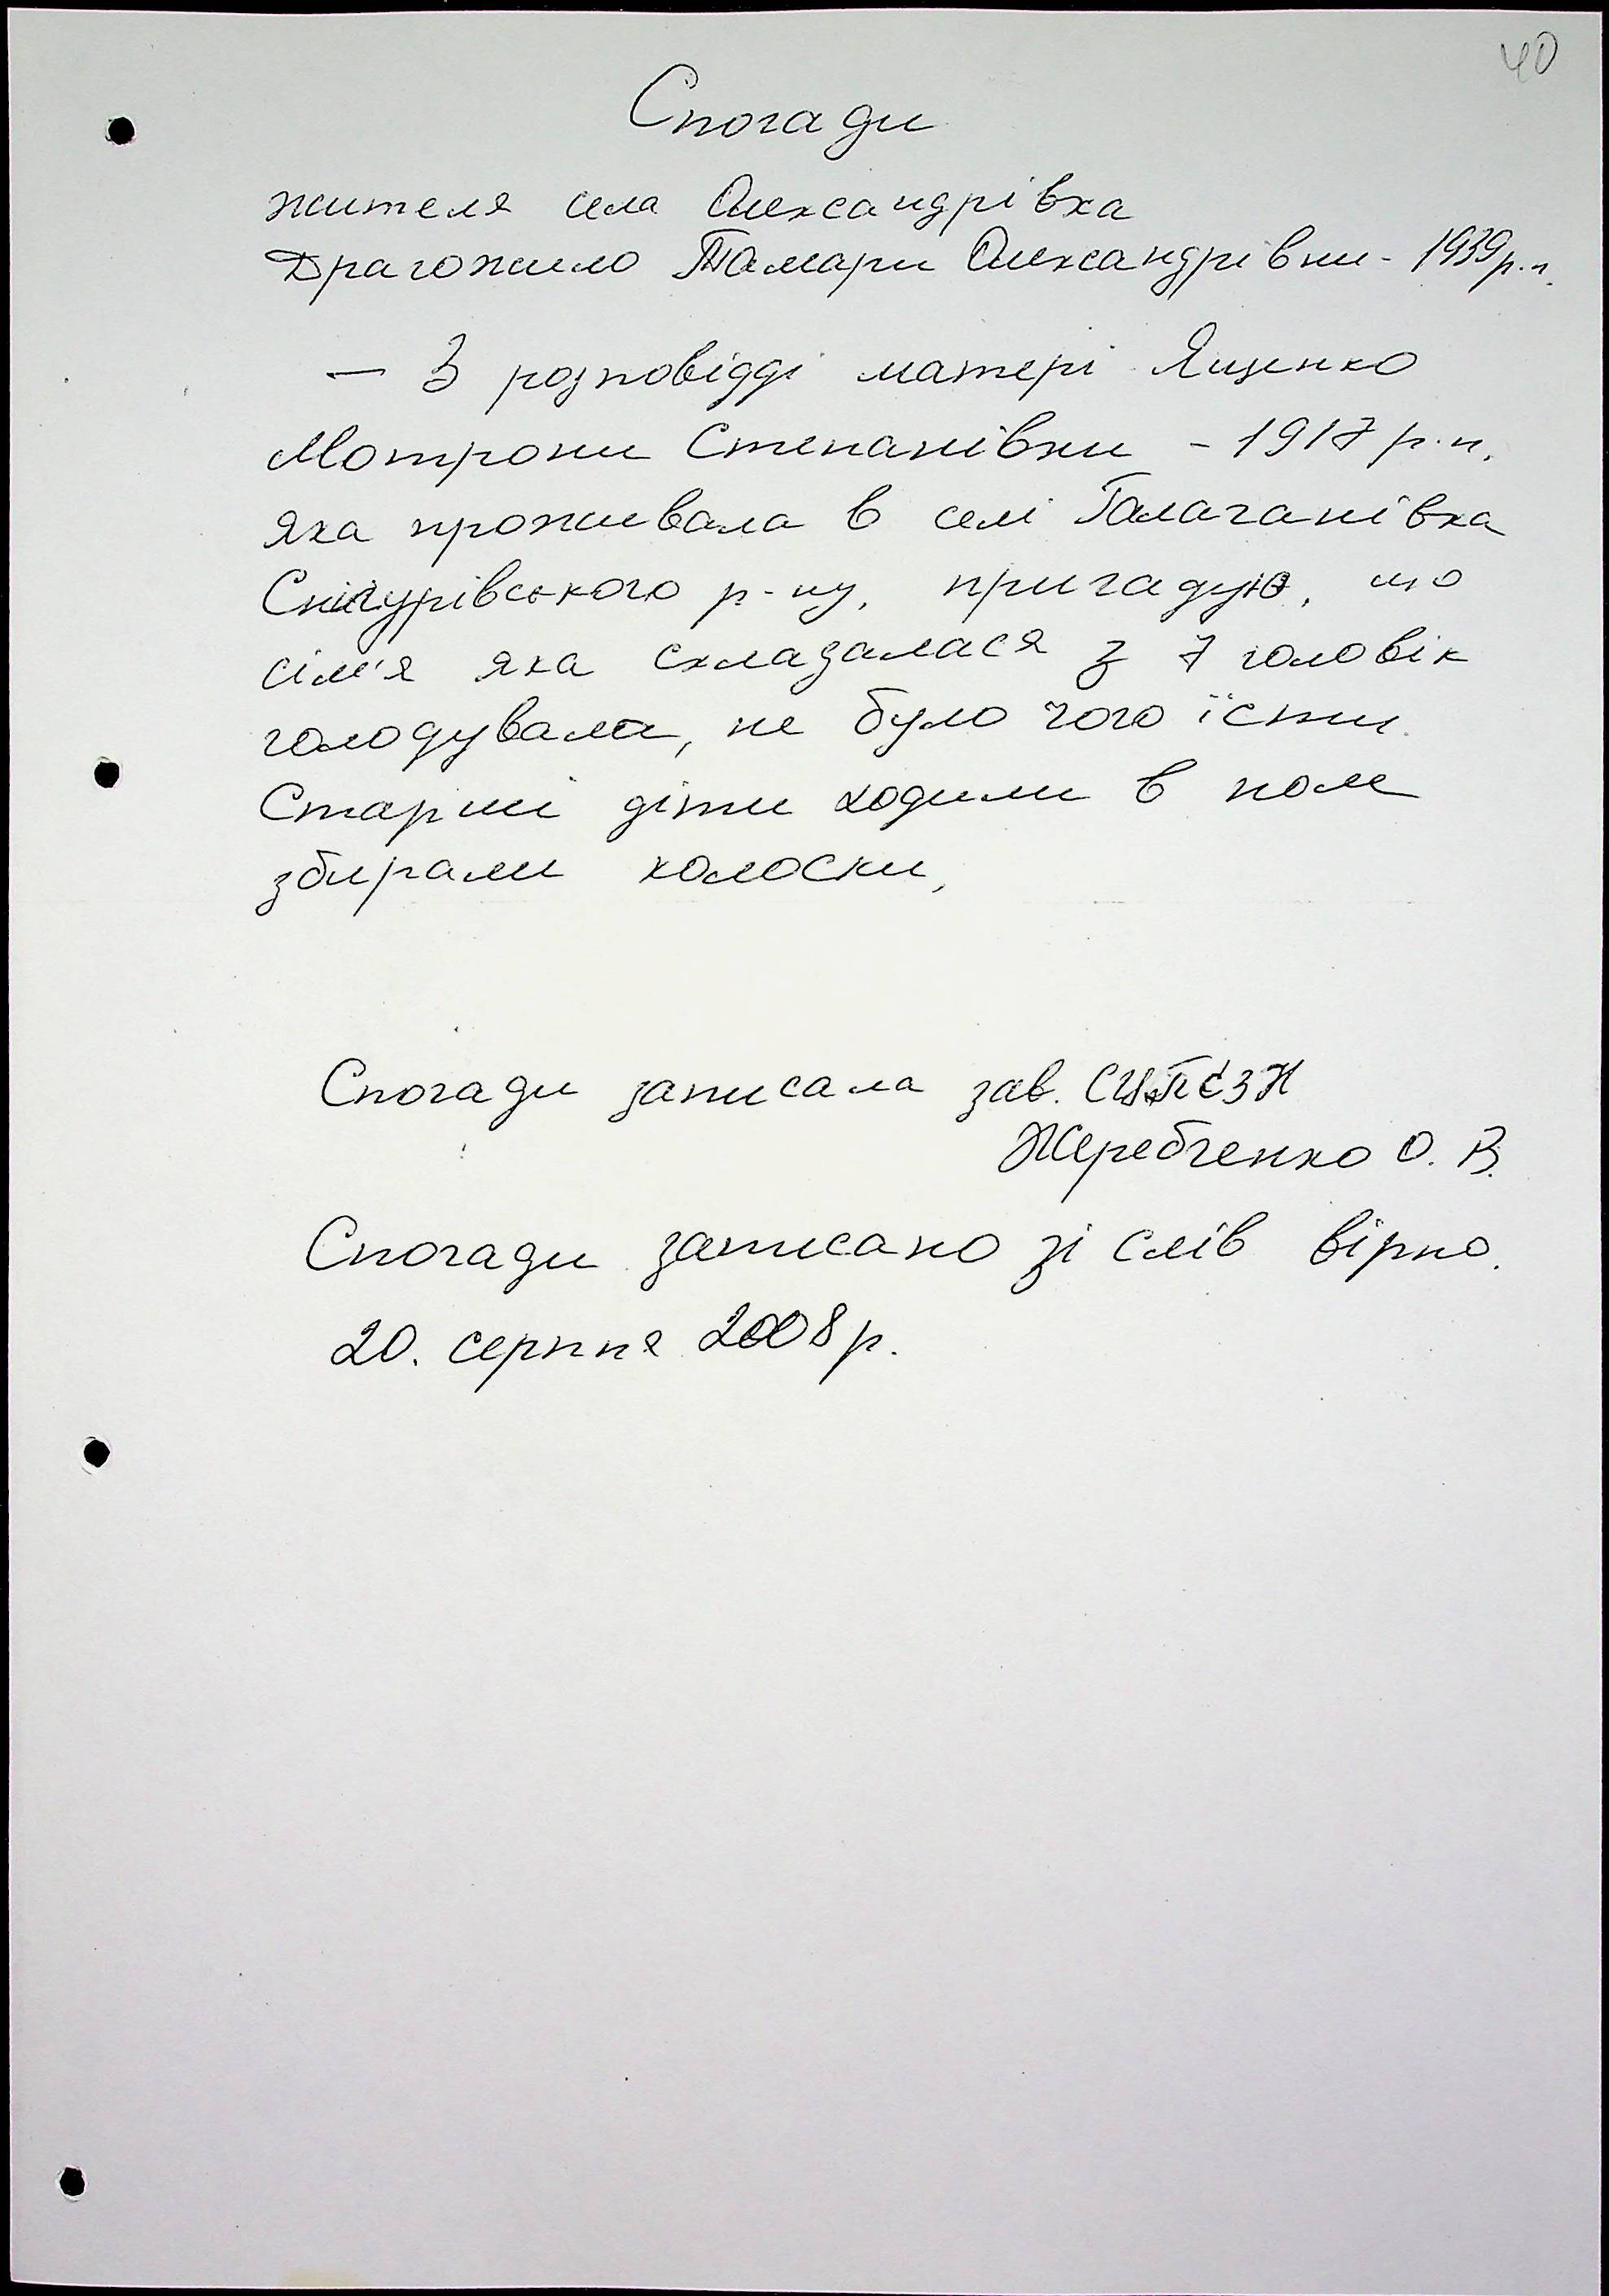 40
Спогади
жителя села Олександрівка
Драгожило Тамари Олександрівни - 1939 р.н.
— З розповідді матері Ященко
Мотрони Степанівни - 1917 р.н.
яка проживала в селі Галаганівка
Снігурівського р-ну, пригадую, що
сім'я яка складалася з 7 чоловік
голодувала, не було чого їсти.
Старші діти ходили в поле
збирали колоски,
Спогади записала зав. СЦПСЗН
Жеребченко О. В.
Спогади записано зі слів вірно.
20. серпня 2008 р.